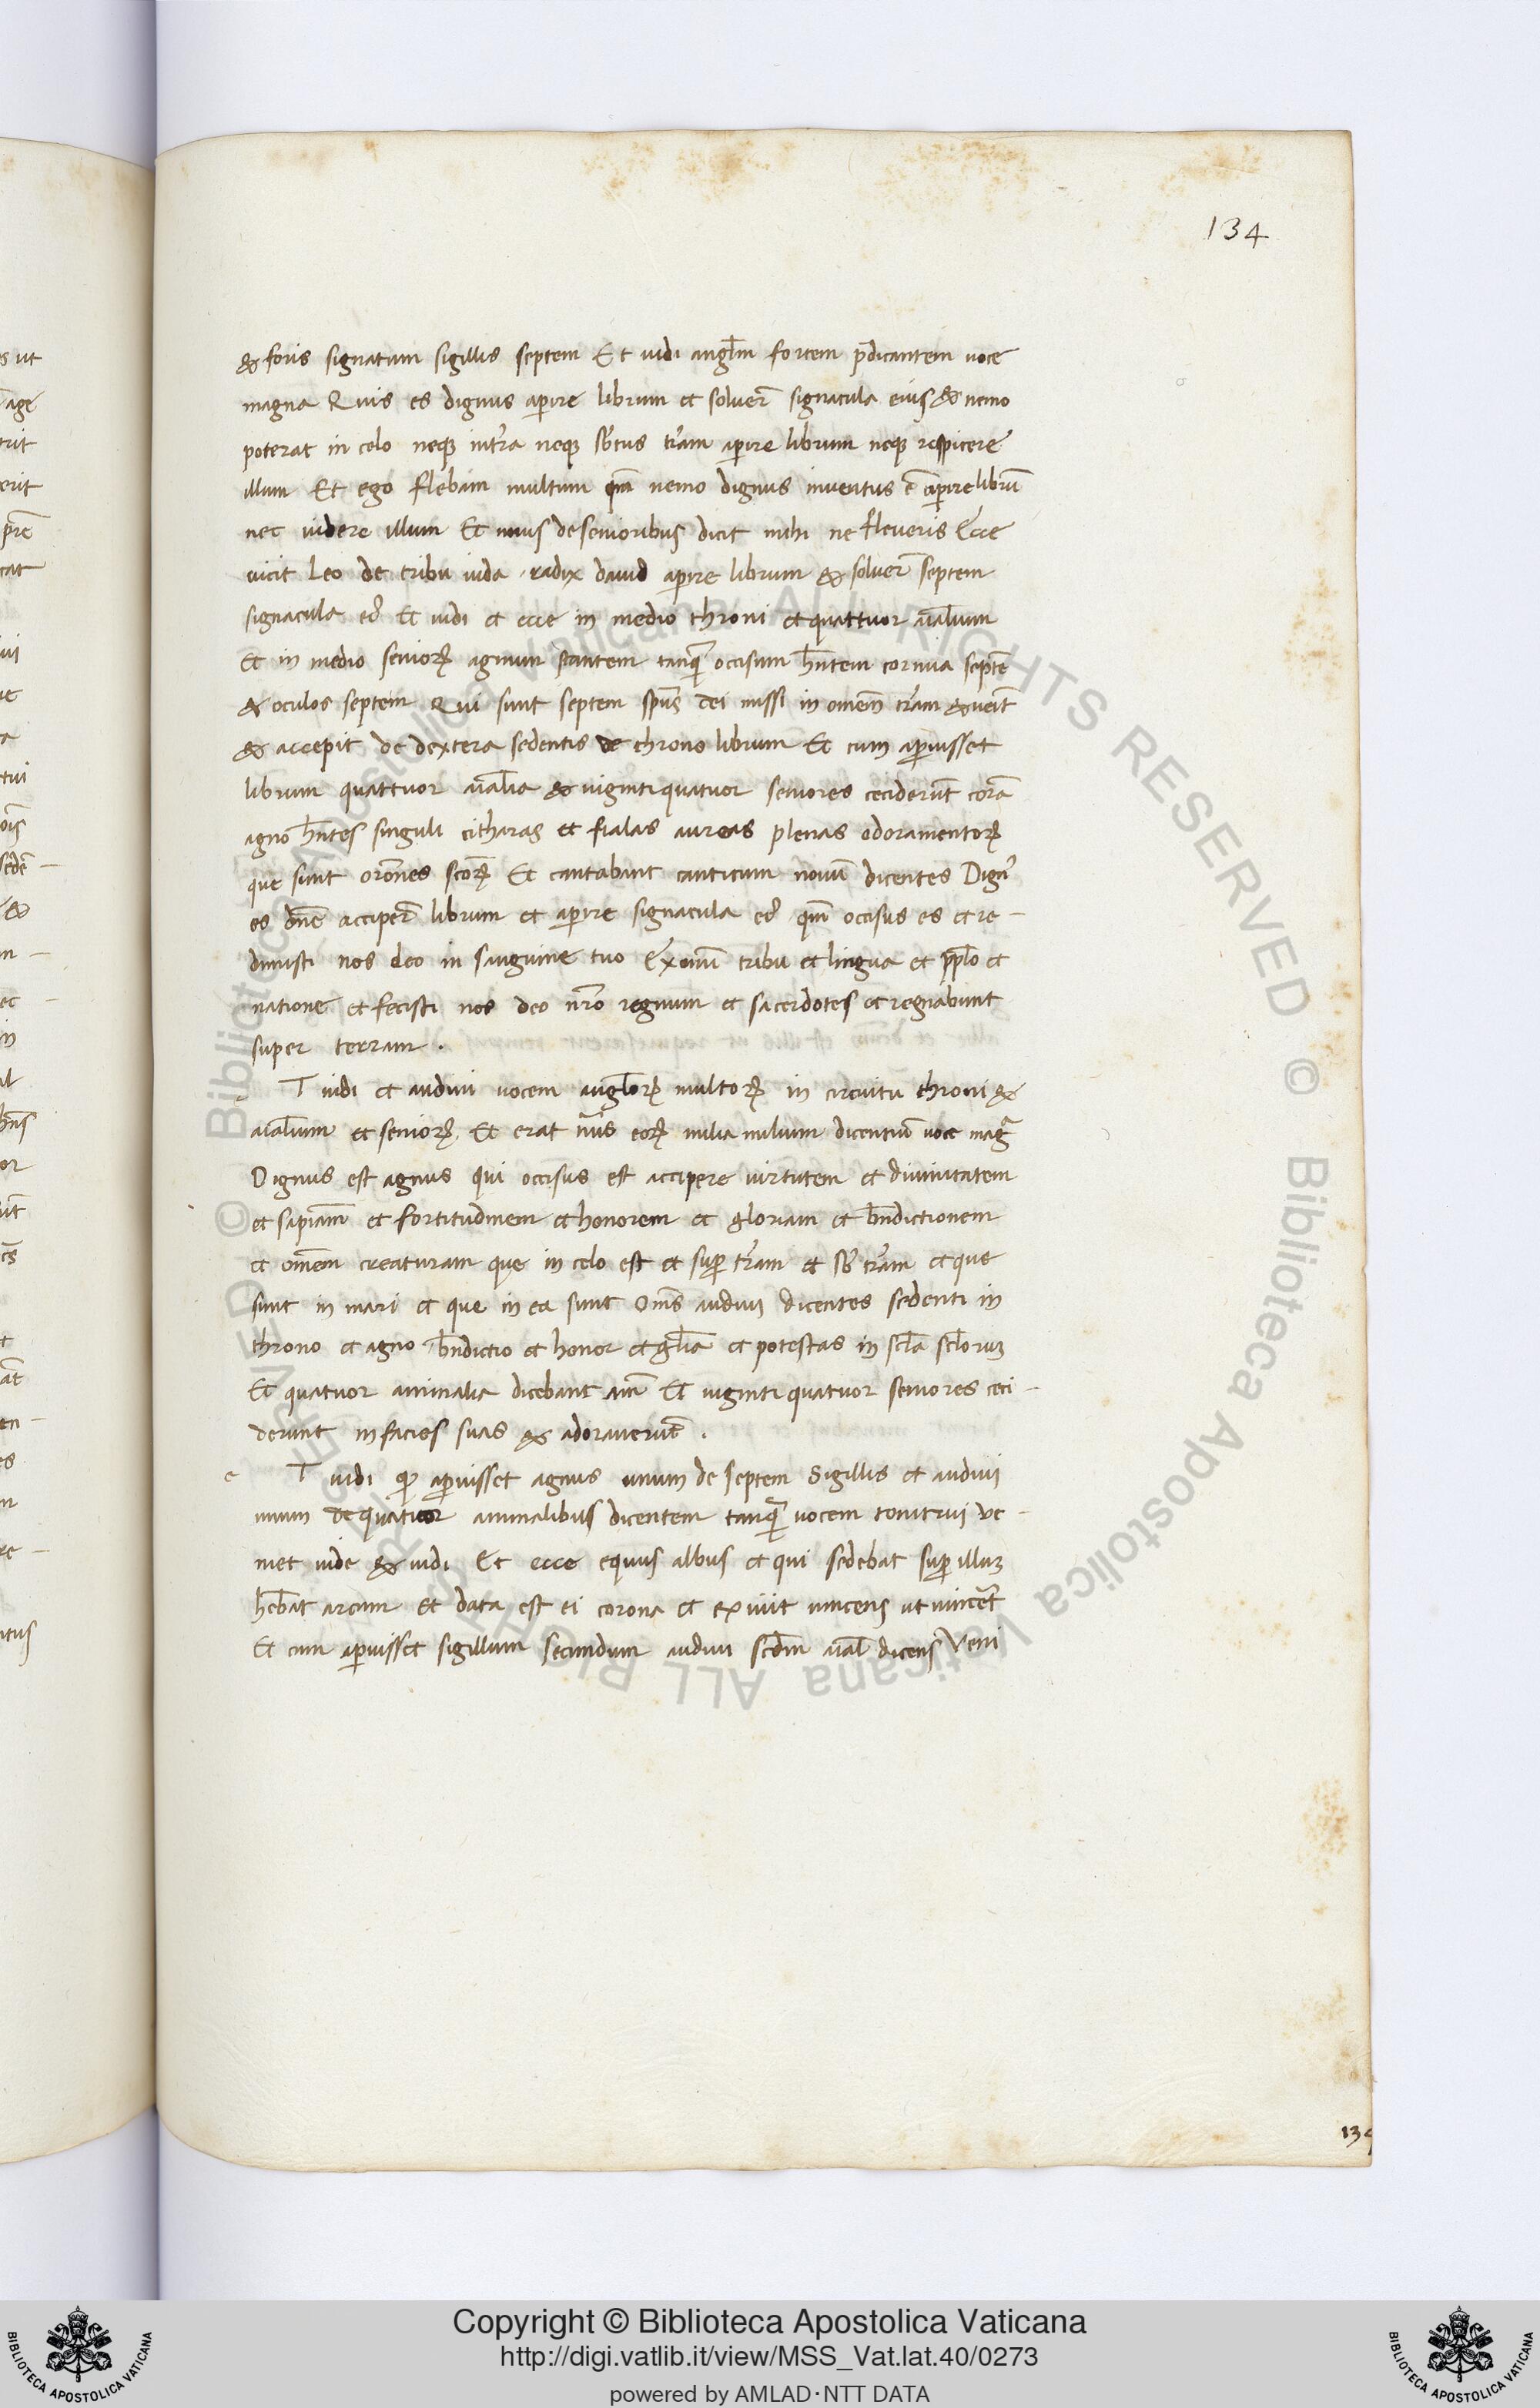 134
& foris signatum sigillis septem Et uidi angl̄m fortem p̄dicantem uoce
magna Quis es dignus aꝑire librum et soluer̄ signacula eius & nemo
poterat in celo neqꝫ intr̄a neqꝫ sbtus tr̄am aꝑire librum neqꝫ respicere
illum Et ego flebam multum qm̄ nemo dignus inuentus ē aꝑire librū
nec uidere illum Et unus de senioribus dicit mihi ne fleueris Ecce
uicit Leo de tribu iuda radix dauid aꝑire librum & soluer̄ septem
signacula eiꝰ Et uidi et ecce in medio throni et quattuor aīalium
Et in medio senioꝝ agnum stantem tanq̄ occisum hn̄tem cornua septē
& oculos septem Qui sunt septem spūs dei missi in omem̄ tr̄am & ueīt
& accepit de dextera sedentis de throno librum Et cum aꝑuisset
librum quattuor aīalia & uigintiquatuor seniores ceciderūt corā
agno hn̄tes singuli citharas et fialas aureas plenas odoramentoꝝ
que sunt orōnes scōꝝ Et cantabant canticum nouū dicentes Dignꝰ
es dn̄e acciper̄ librum et aꝑire signacula eiꝰ qm̄ occisus es et re-
dimisti nos deo in sanguine tuo Ex omi tribu et lingua et ppl̄o et
natione et fecisti nos deo nr̄o regnum et sacerdotes et regnabunt
super terram .
T uidi et audiui uocem anglōꝝ multoꝝ in circuitu throni &
aīalium et senioꝝ Et erat nūs eoꝝ milia milium dicentiū uoce magᵃ
Dignus est agnus qui occisus est accipere uirtutem et diuinitatem
et sapiam̄ et fortitudinem et honorem et gloriam et bn̄dictionem
et omēm creaturam que in celo est et suꝑ tr̄am et sb tr̄am et que
sunt in mari et que in ea sunt Om̄s audiui dicentes sedenti in
throno et agno bn̄dictio et honor et gl̄ia et potestas in scl̄a scl̄orum
Et quatuor animalia dicebant am̄ Et uiginti quatuor seniores ceci-
derunt in facies suas & adorauerūt .
e T uidi qꝫ aꝑuisset agnus unum de septem Sigillis et audiui
unum de quatuor animalibus dicentem tanq̄ uocem tonitrui Ve-
niet uide & uidi Et ecce equus albus et qui sedebat suꝑ illum
hēbat arcum Et data est ei corona et exiuit uincens ut uincēt
Et cum aꝑuisset sigillum secundum audiui scdm̄ aīal dicens Veni
134
Copyright © Biblioteca Apostolica Vaticana
http://digi.vatlib.it/view/MSS_Vat.lat.40/0273
powered by AMLAD·NTT DATA